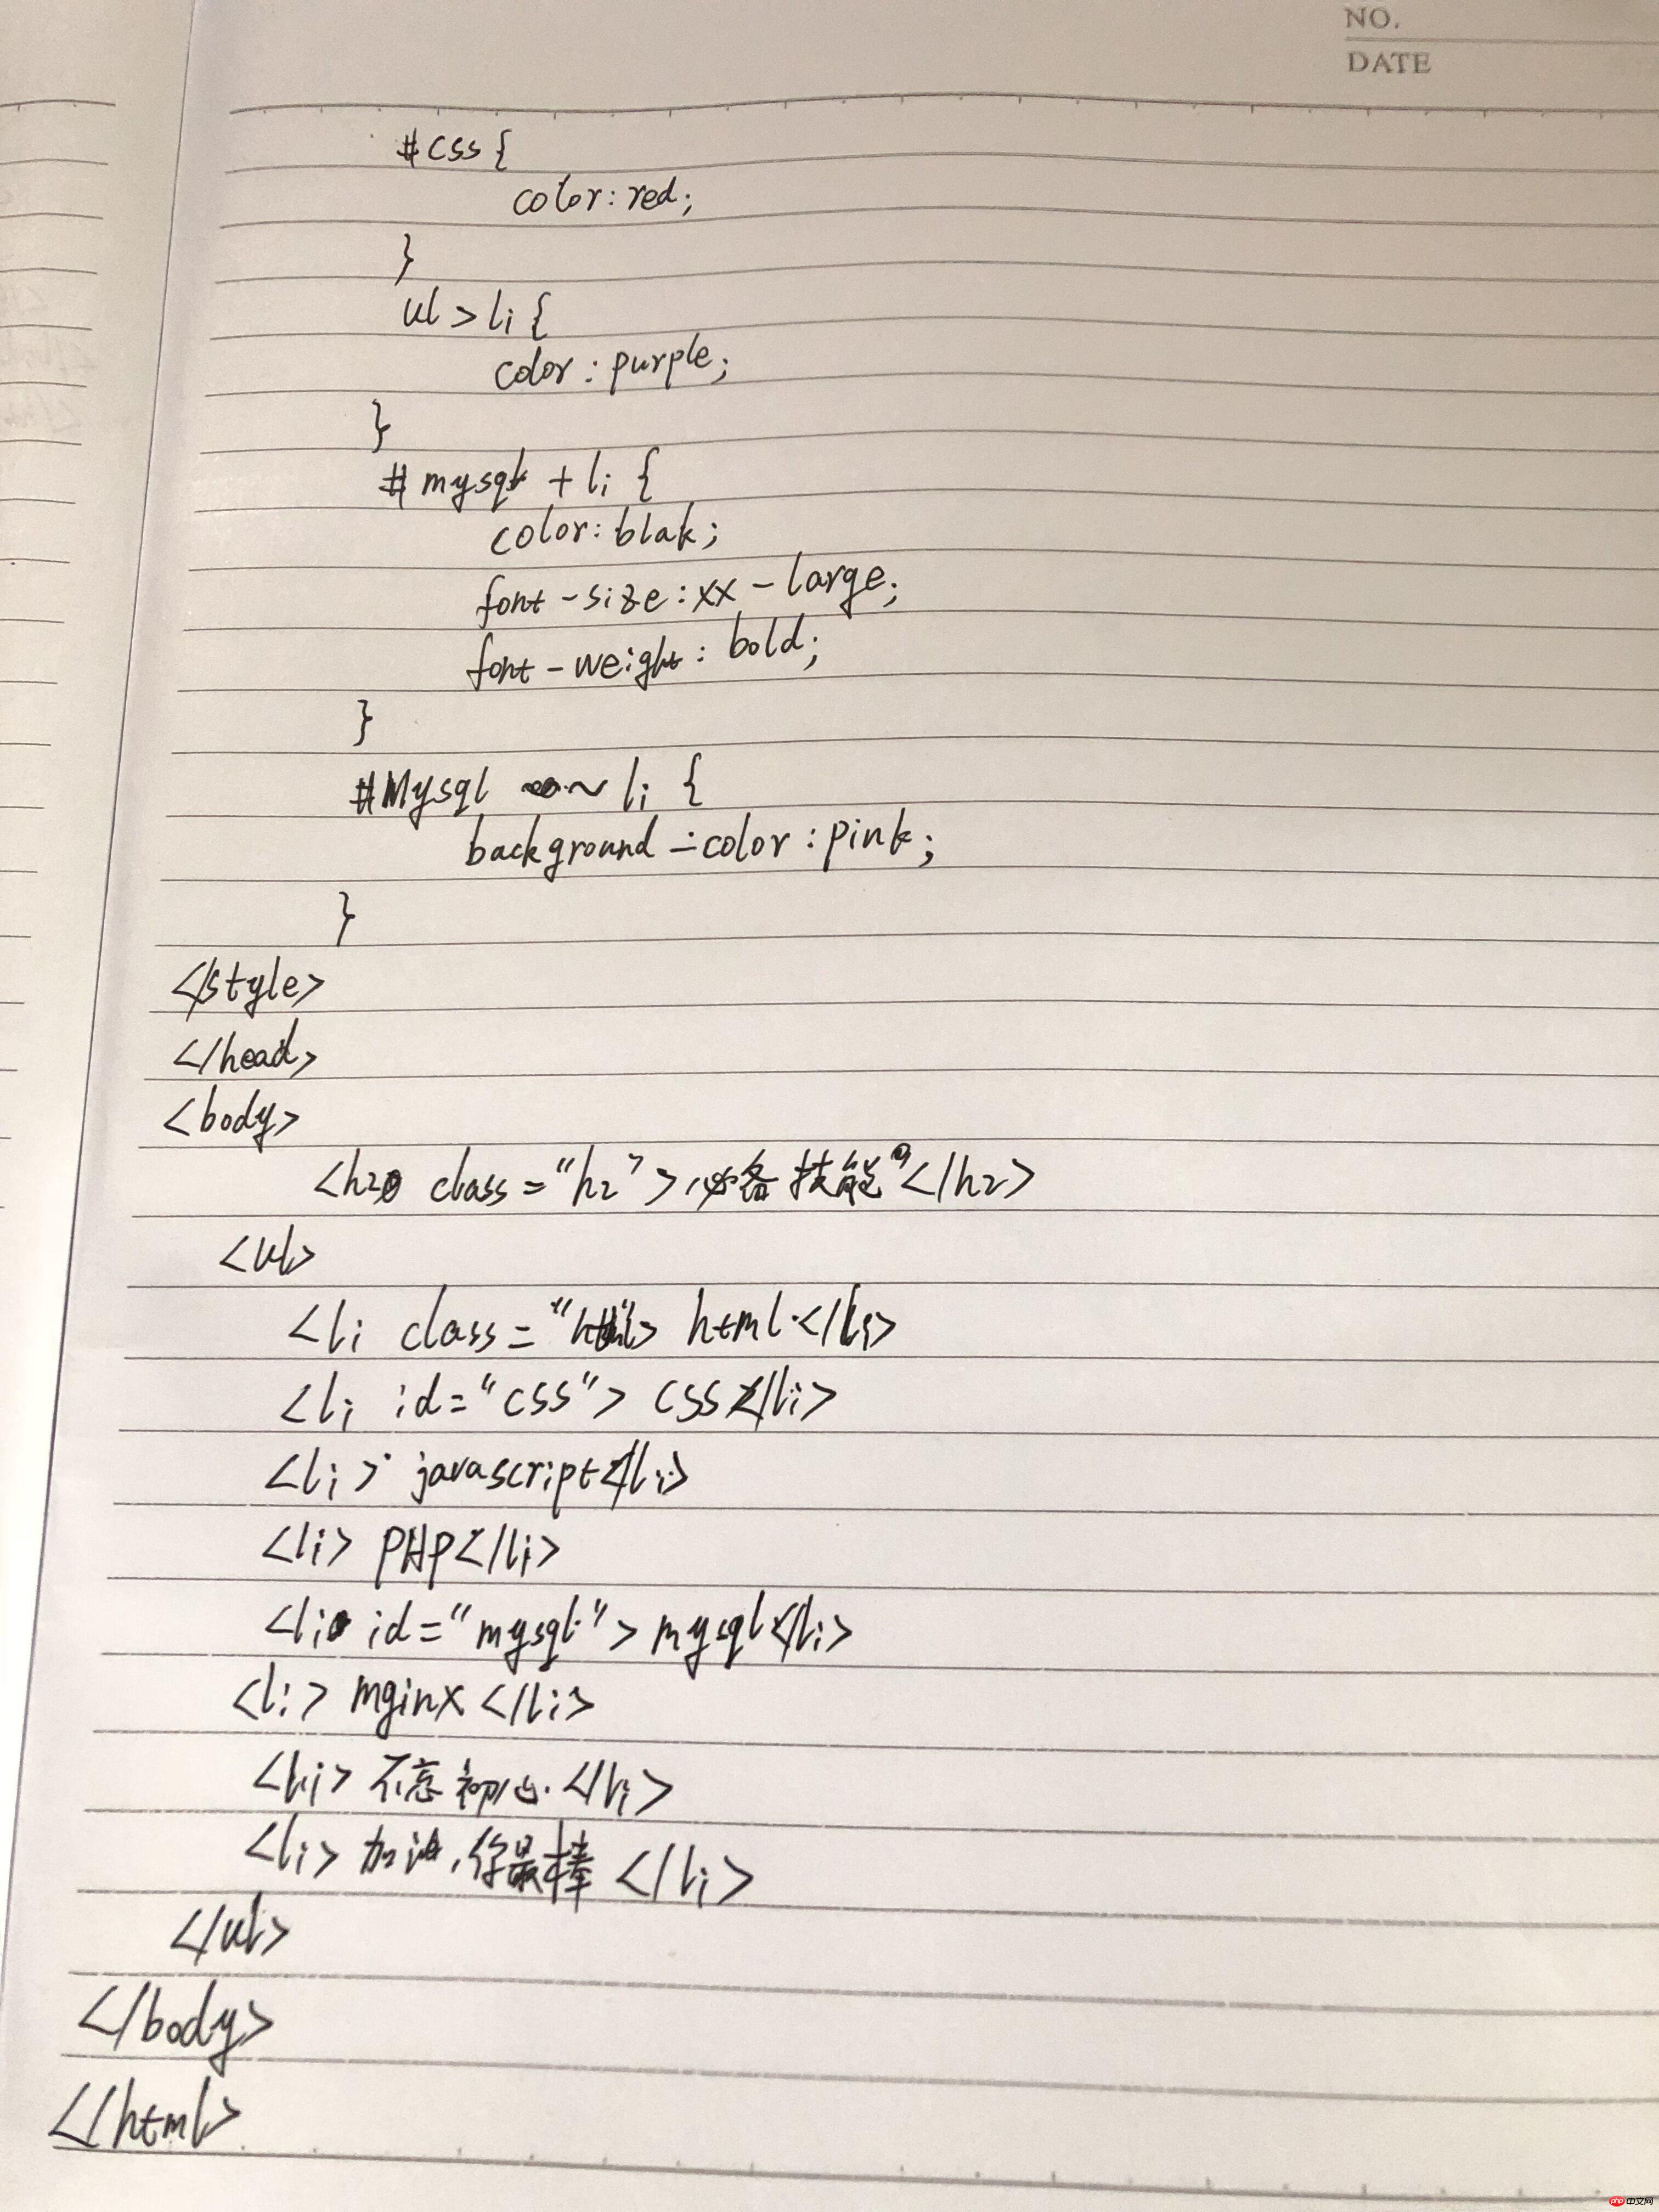 NO.
DATE
#css {
color: red;
}
ul > li {
color: purple;
}
# mysql + li {
color: blak;
font-size: xx-large;
font-weight: bold;
}
#Mysql ~ li {
background-color: pink;
}
</style>
</head>
<body>
<h2 class="h2">必备技能</h2>
<ul>
<li class="html> html</li>
<li id="css"> css</li>
<li> javascript</li>
<li> PHP</li>
<li id="mysql"> mysql</li>
<li> mginx </li>
<li> 不忘初心.</li>
<li> 加油,你最棒 </li>
</ul>
</body>
</html>
php 中文网